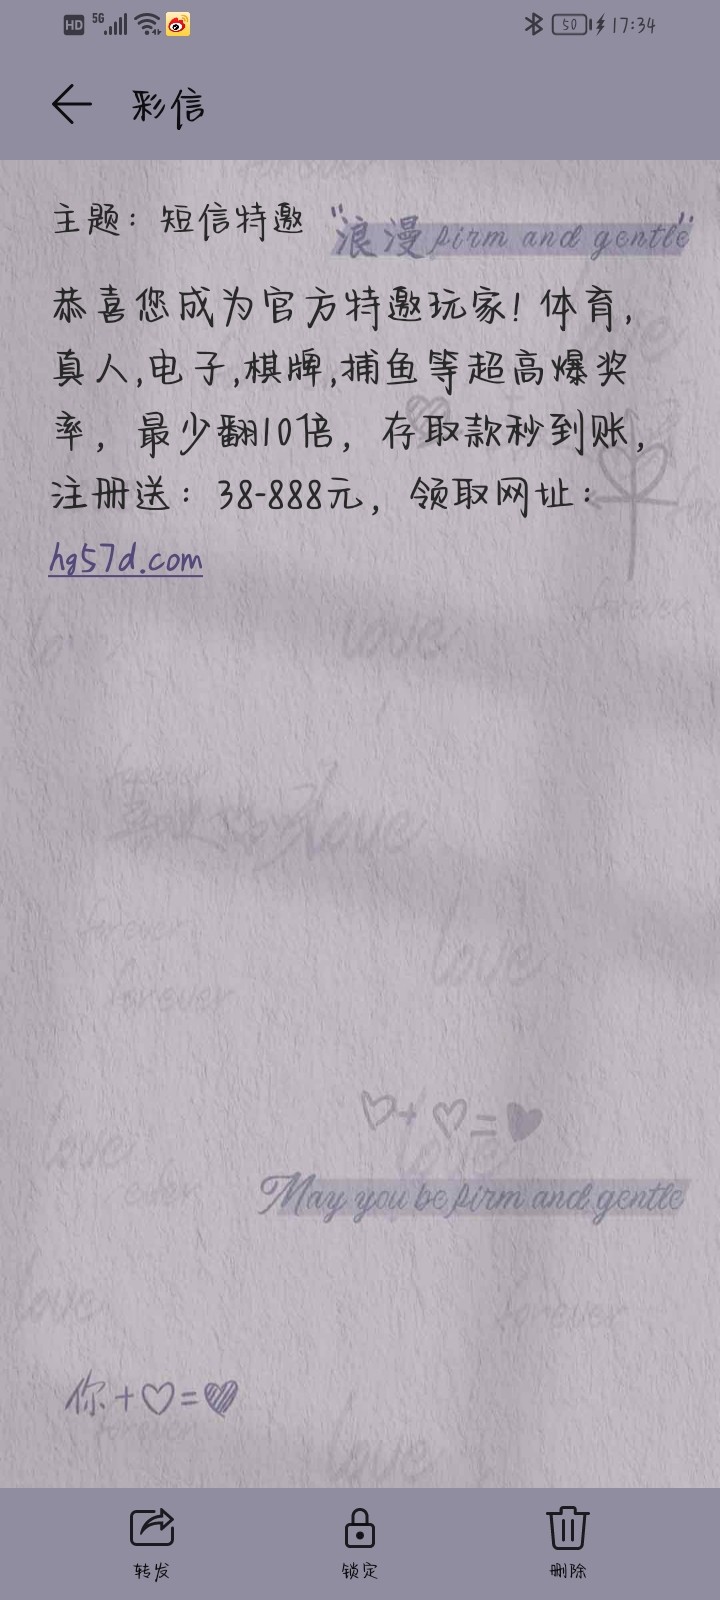 HD 5G 50 17:34
彩信
主题：短信特邀
"浪漫 firm and gentle"
恭喜您成为官方特邀玩家！体育,
真人,电子,棋牌,捕鱼等超高爆奖
率，最少翻10倍，存取款秒到账，
注册送：38-888元，领取网址：
hg57d.com
forever
love
love
forever
love
forever
love
forever
love
ever
May you be firm and gentle
love
forever
你+♡=♥
forever
love
转发 锁定 删除